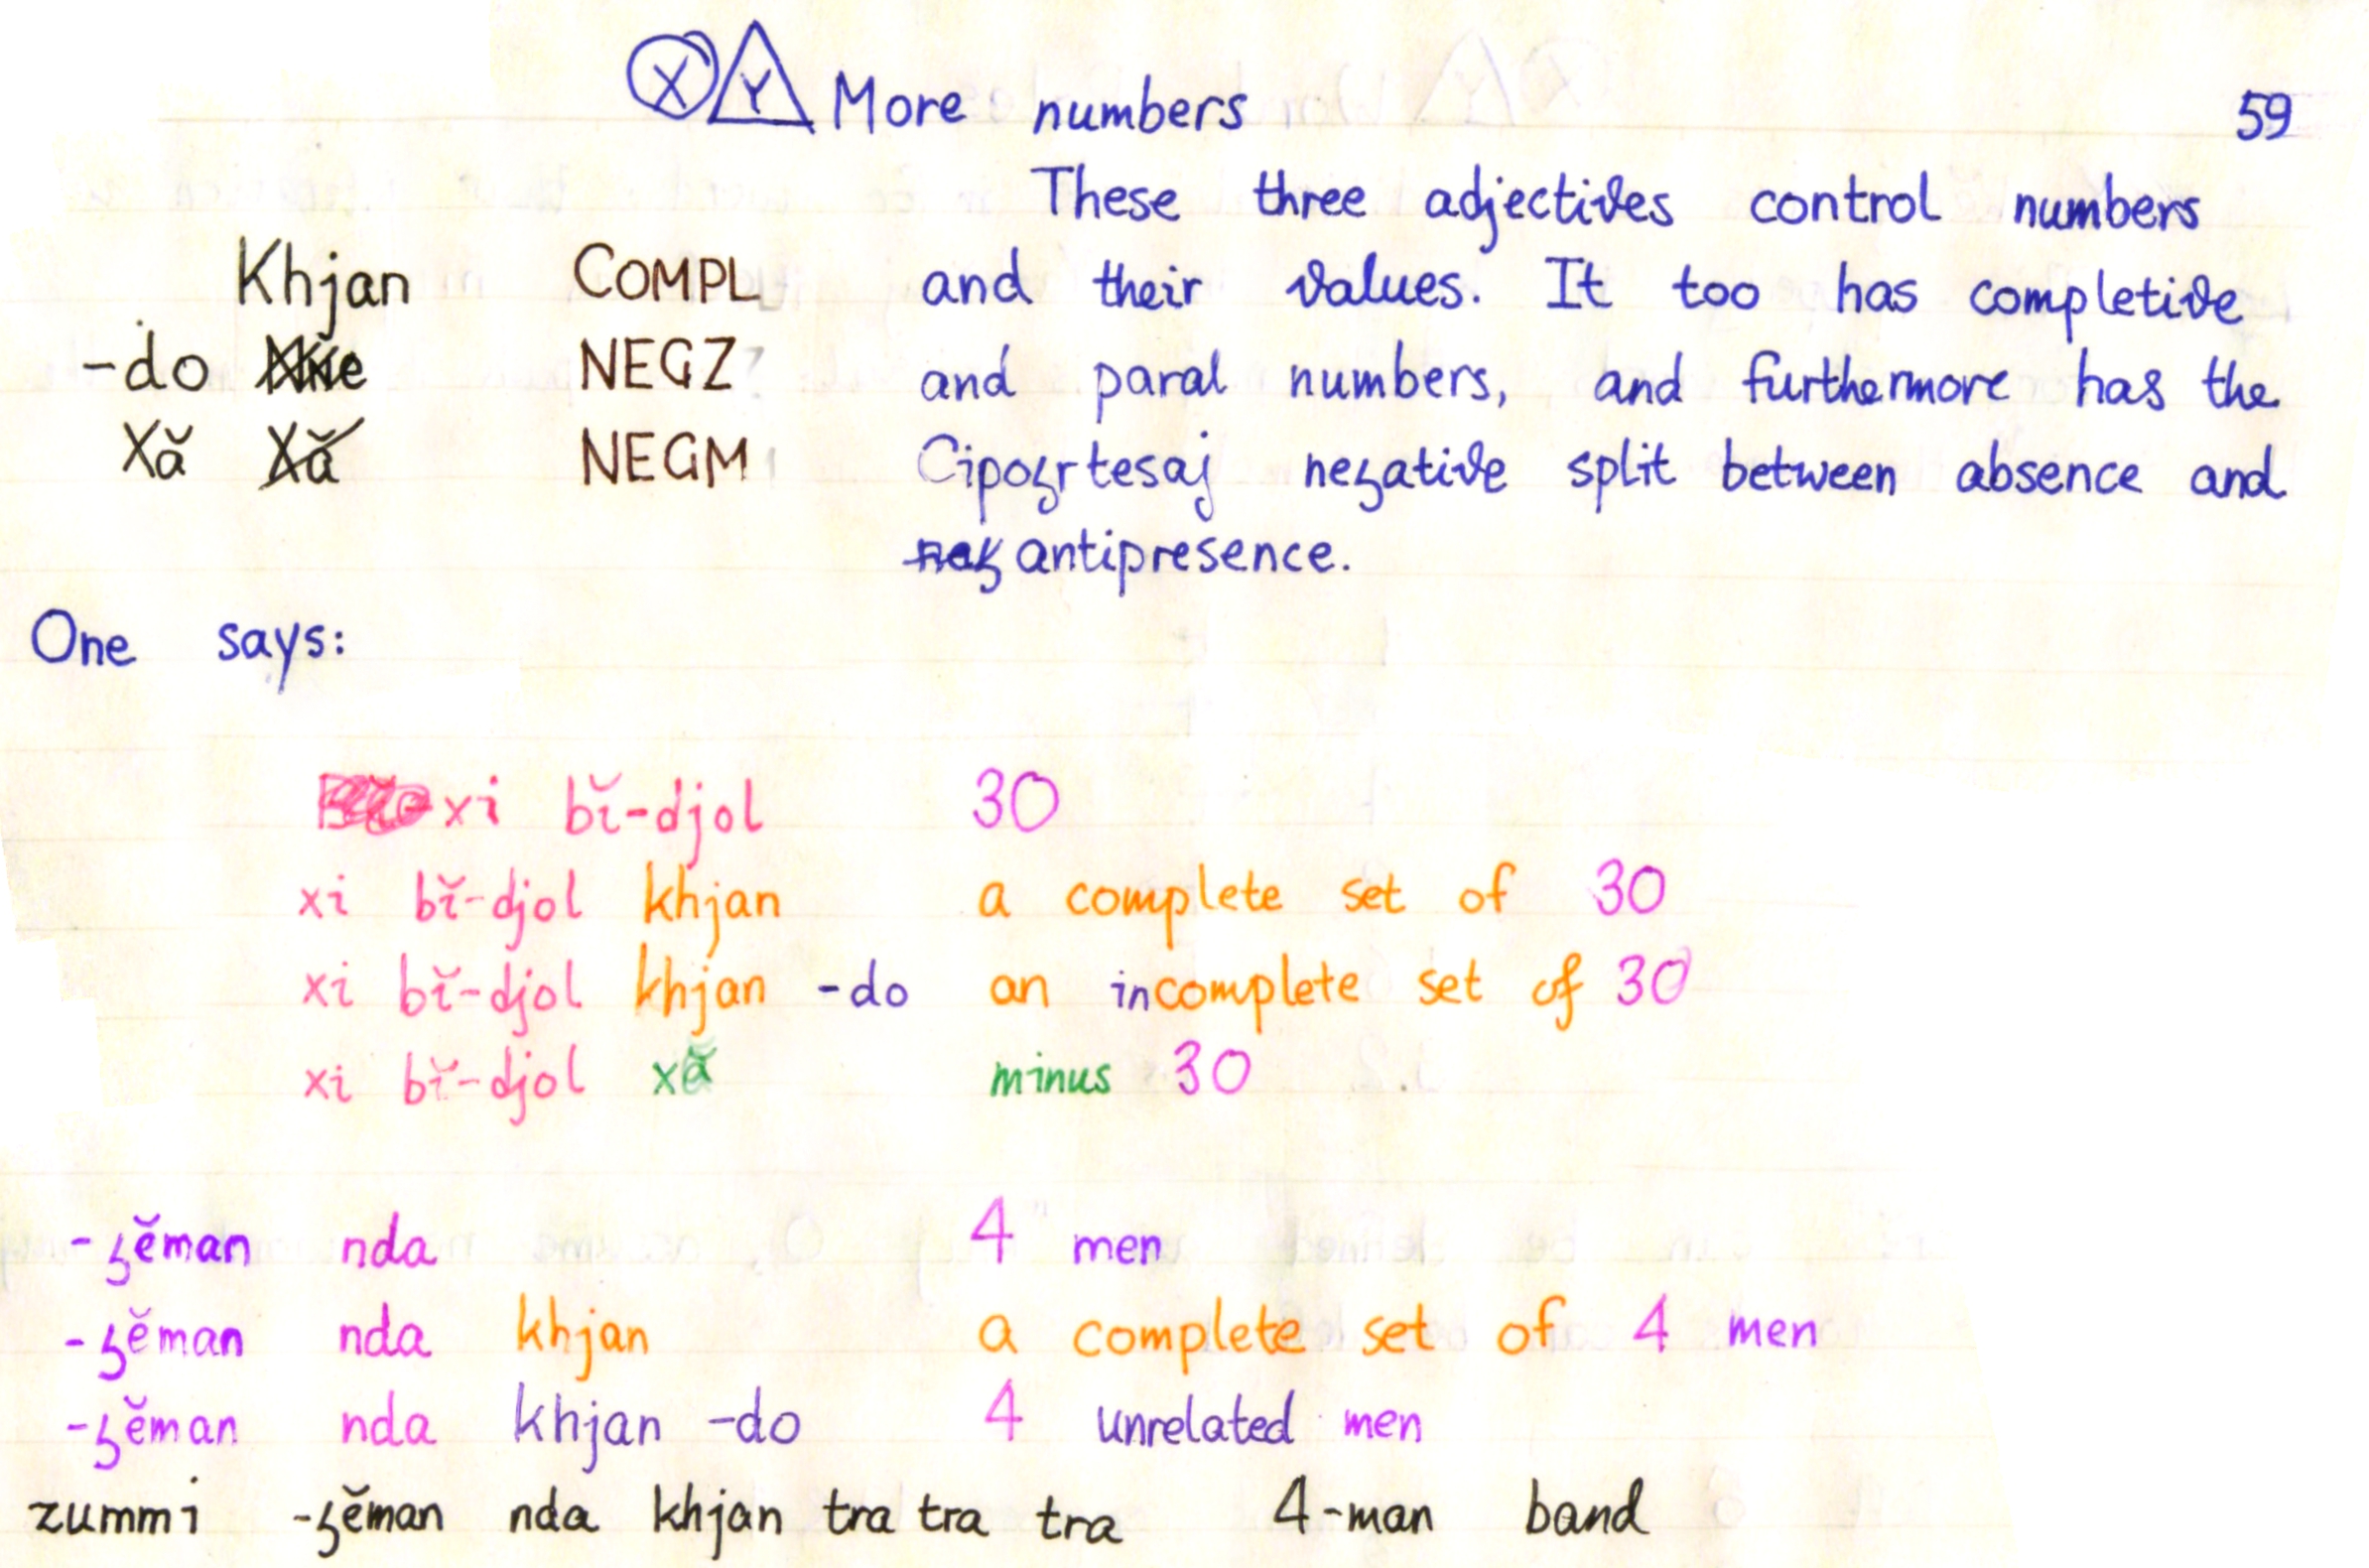 X Y More numbers 59
These three adjectives control numbers
Khjan COMPL and their values. It too has completive
-do NEGZ and paral numbers, and furthermore has the
Xă Xă NEGM Cipoȝrtesaj neȝative split between absence and
antipresence.
One says:
xi bĭ-djol 30
xi bĭ-djol khjan a complete set of 30
xi bĭ-djol khjan -do an incomplete set of 30
xi bĭ-djol xă minus 30
-ȝĕman nda 4 men
-ȝĕman nda khjan a complete set of 4 men
-ȝĕman nda khjan -do 4 unrelated men
zummi -ȝĕman nda khjan tra tra tra 4-man band